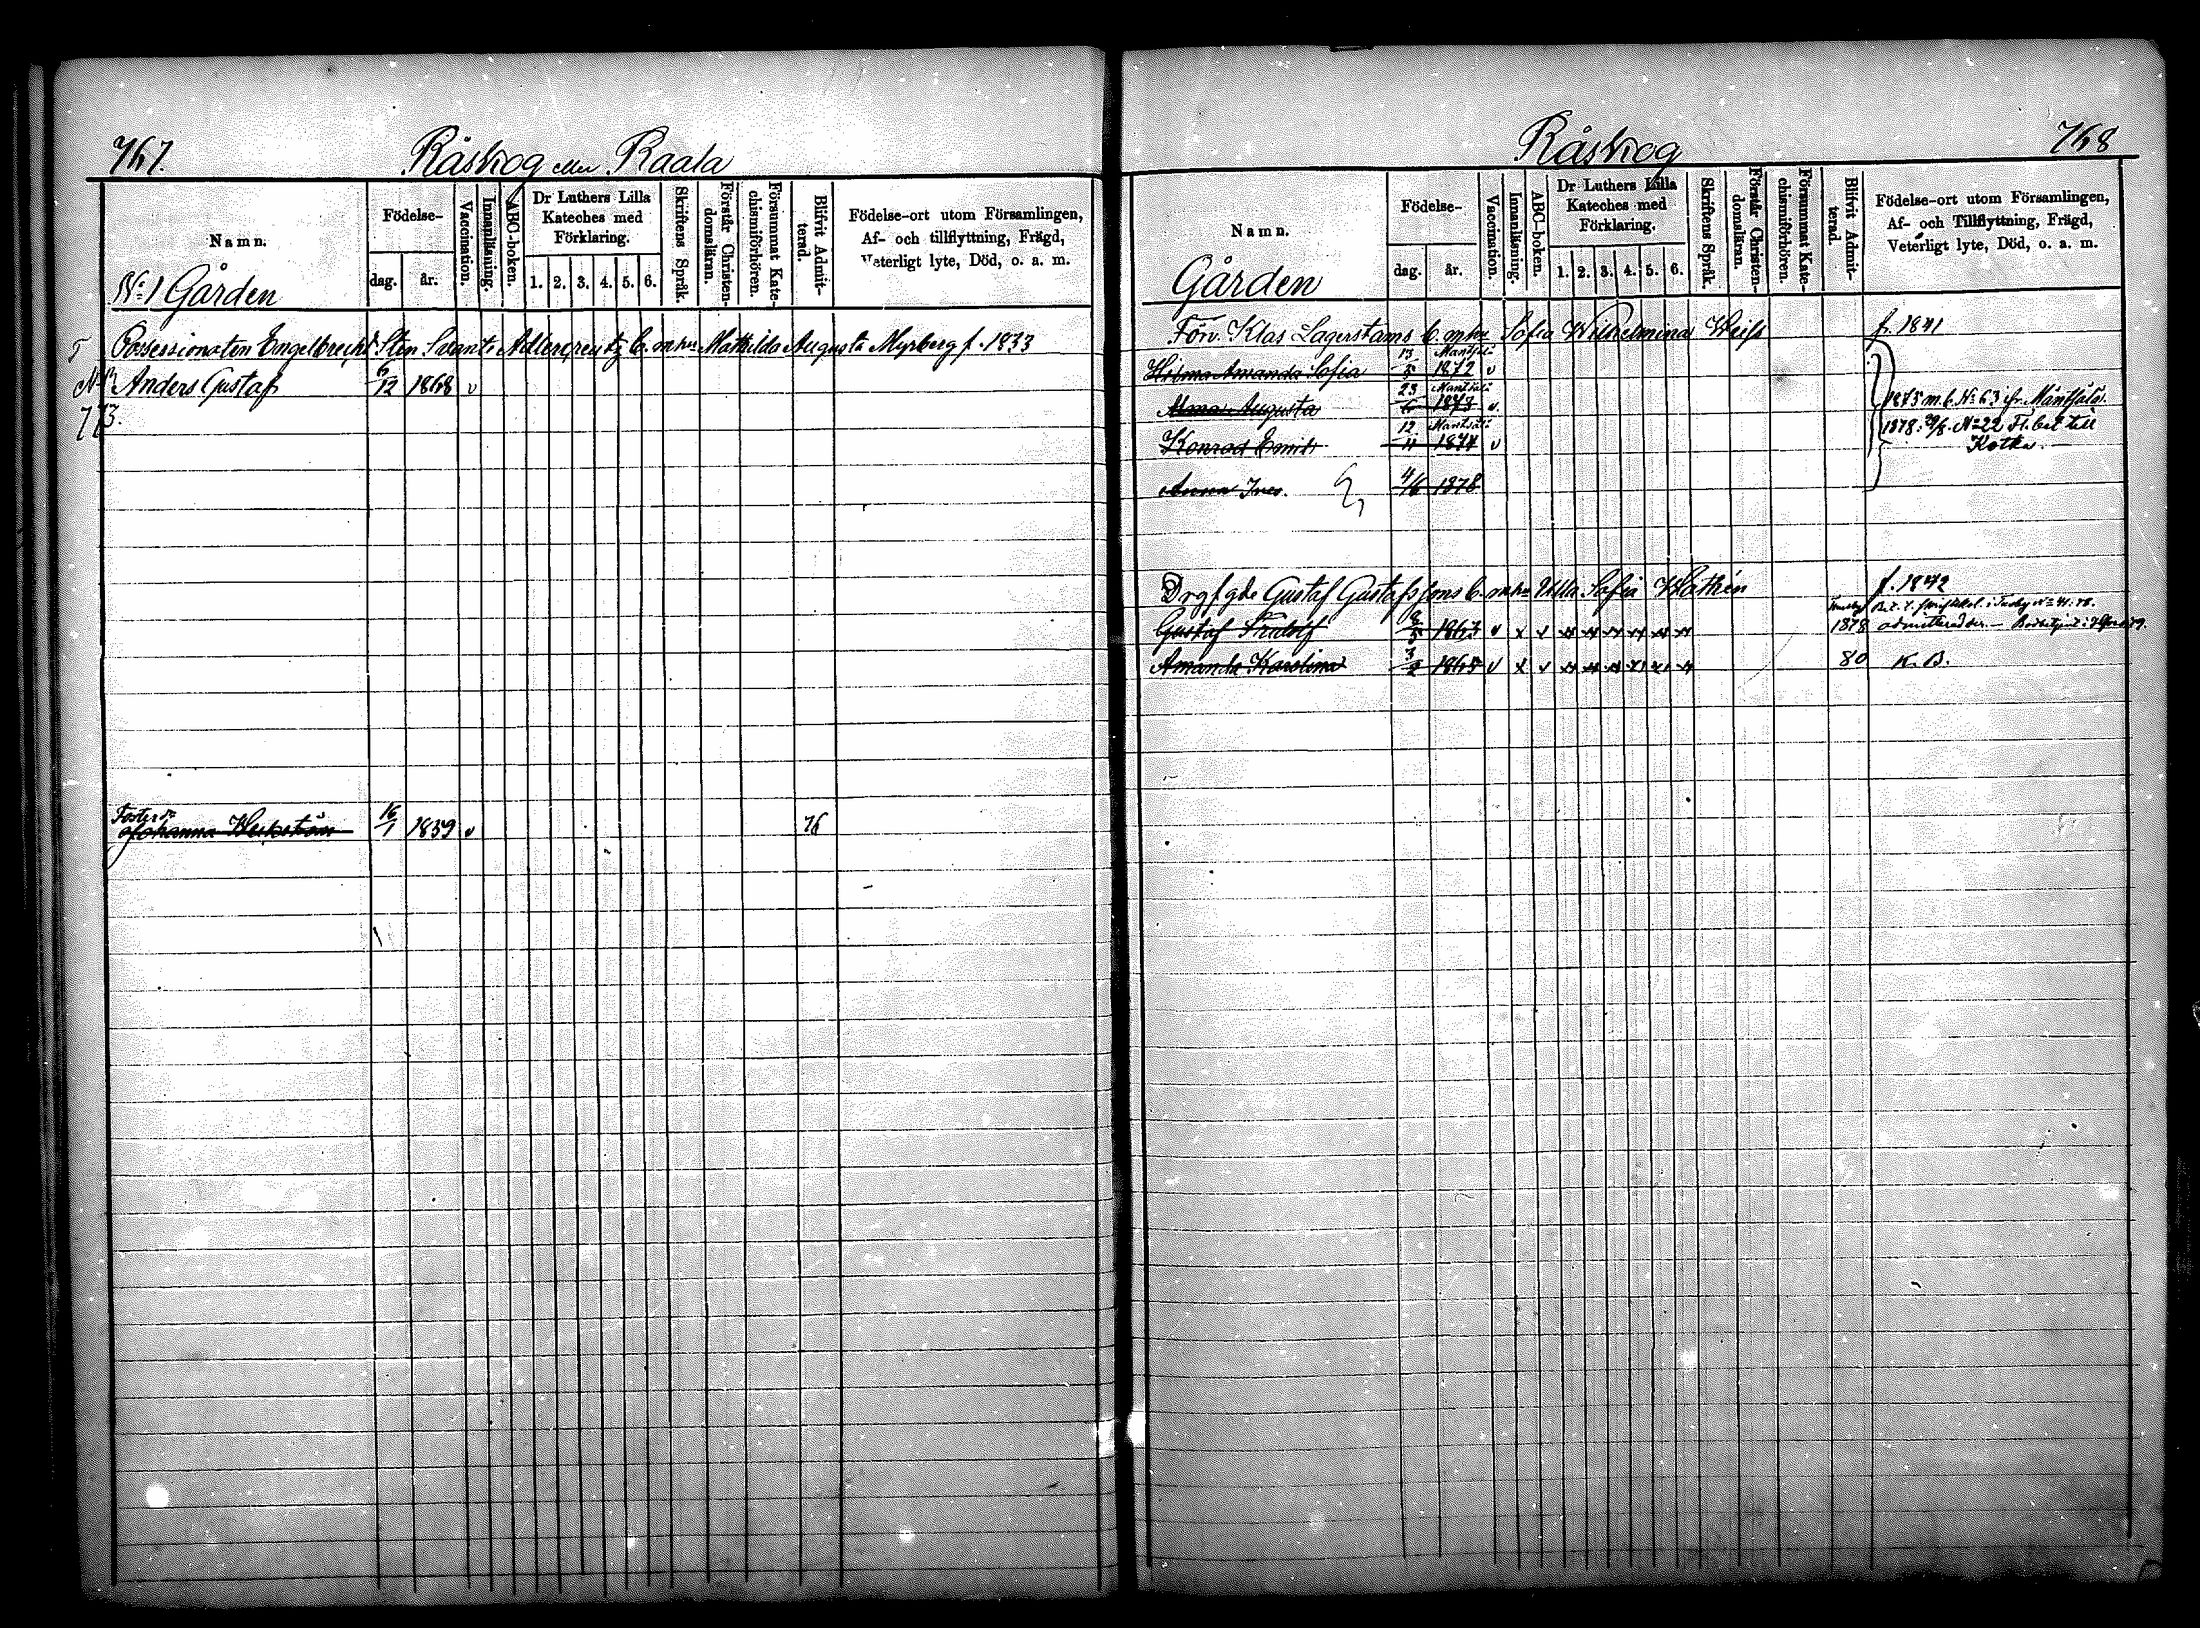 767.
Råskog eller Raala
Namn.
Födelse-
dag.
år.
Vaccination.
Innanläsning.
ABC-boken.
Dr Luthers Lilla
Kateches med
Förklaring.
1. 2. 3. 4. 5. 6.
Skriftens Språk.
Förstår Christen-
domsläran.
Försummat Kate-
chismiförhören.
Blifvit Admit-
terad.
Födelse-ort utom Församlingen,
Af- och tillflyttning, Frägd,
Veterligt lyte, Död, o. a. m.
No 1 Gården
Possessionaten Engelbrecht Sten Svante Adlercreutz b. m. hu Mathilda Augusta Myrberg f. 1833
Anders Gustaf 6/12 1868 v
773.
Fosterd:r
Johanna 16/1 1859 v 76
768
Råskog
Namn.
Födelse-
dag.
år.
Vaccination.
Innanläsning.
ABC-boken.
Dr Luthers Lilla
Kateches med
Förklaring.
1. 2. 3. 4. 5. 6.
Skriftens Språk.
Förstår Christen-
domsläran.
Försummat Kate-
chismiförhören.
Blifvit Admit-
terad.
Födelse-ort utom Församlingen,
Af- och Tillflyttning, Frägd,
Veterligt lyte, Död, o. a. m.
Gården
Förv. Klas Lagerstams b. m. hu Sofia Wilhelmina Weiss f. 1841
Hilma Amanda Sofia 13/5 Mäntsälä 1872 v
Alma Augusta 23/6 Mäntsälä 1873 v
1875 m. b. No 63 fr. Mäntsälä.
Konrad Emil 12/11 Mäntsälä 1874 v
1878 No 22 Fl. bet till
Kotka.
Anna Ines. 4/6 1878
Drgfgde Gustaf Gustafssons b. m. hu Ulla Sofia f. 1842
Gustaf Fridolf 1863 v x v 1878
Amanda Karolina 3/2 1865 v x v 80 K. B.